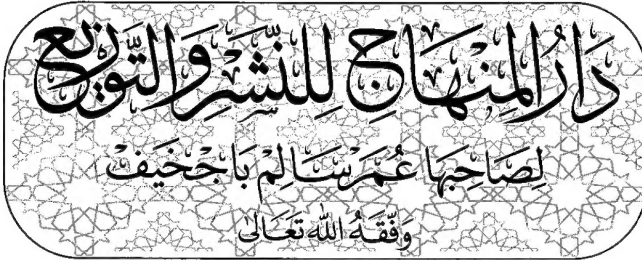 دَارُ المِنْهَاجِ لِلنَّشْرِ وَالتَّوْزِيعِ
لِصَاحِبِهَا عُمَرْ سَالِمْ بَاجْخَيفْ
وَفَّقَهُ اللهُ تَعَالَى